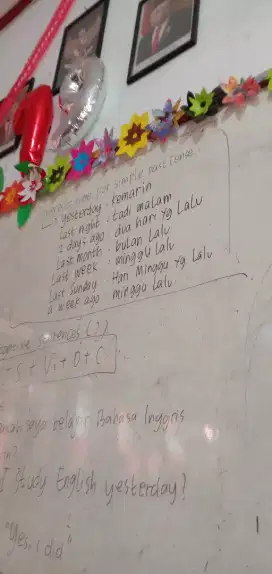 time for simple past tense.
yesterday : kemarin
Last night : tadi malam
2 days ago : dua hari yg lalu
Last month : bulan lalu
Last week : minggu lalu
Last Sunday : Hari Minggu yg lalu
a week ago : minggu lalu
sentences (?)
S + V1 + O + C
saya belajar Bahasa Inggris
I study English yesterday?
"Yes, I did"